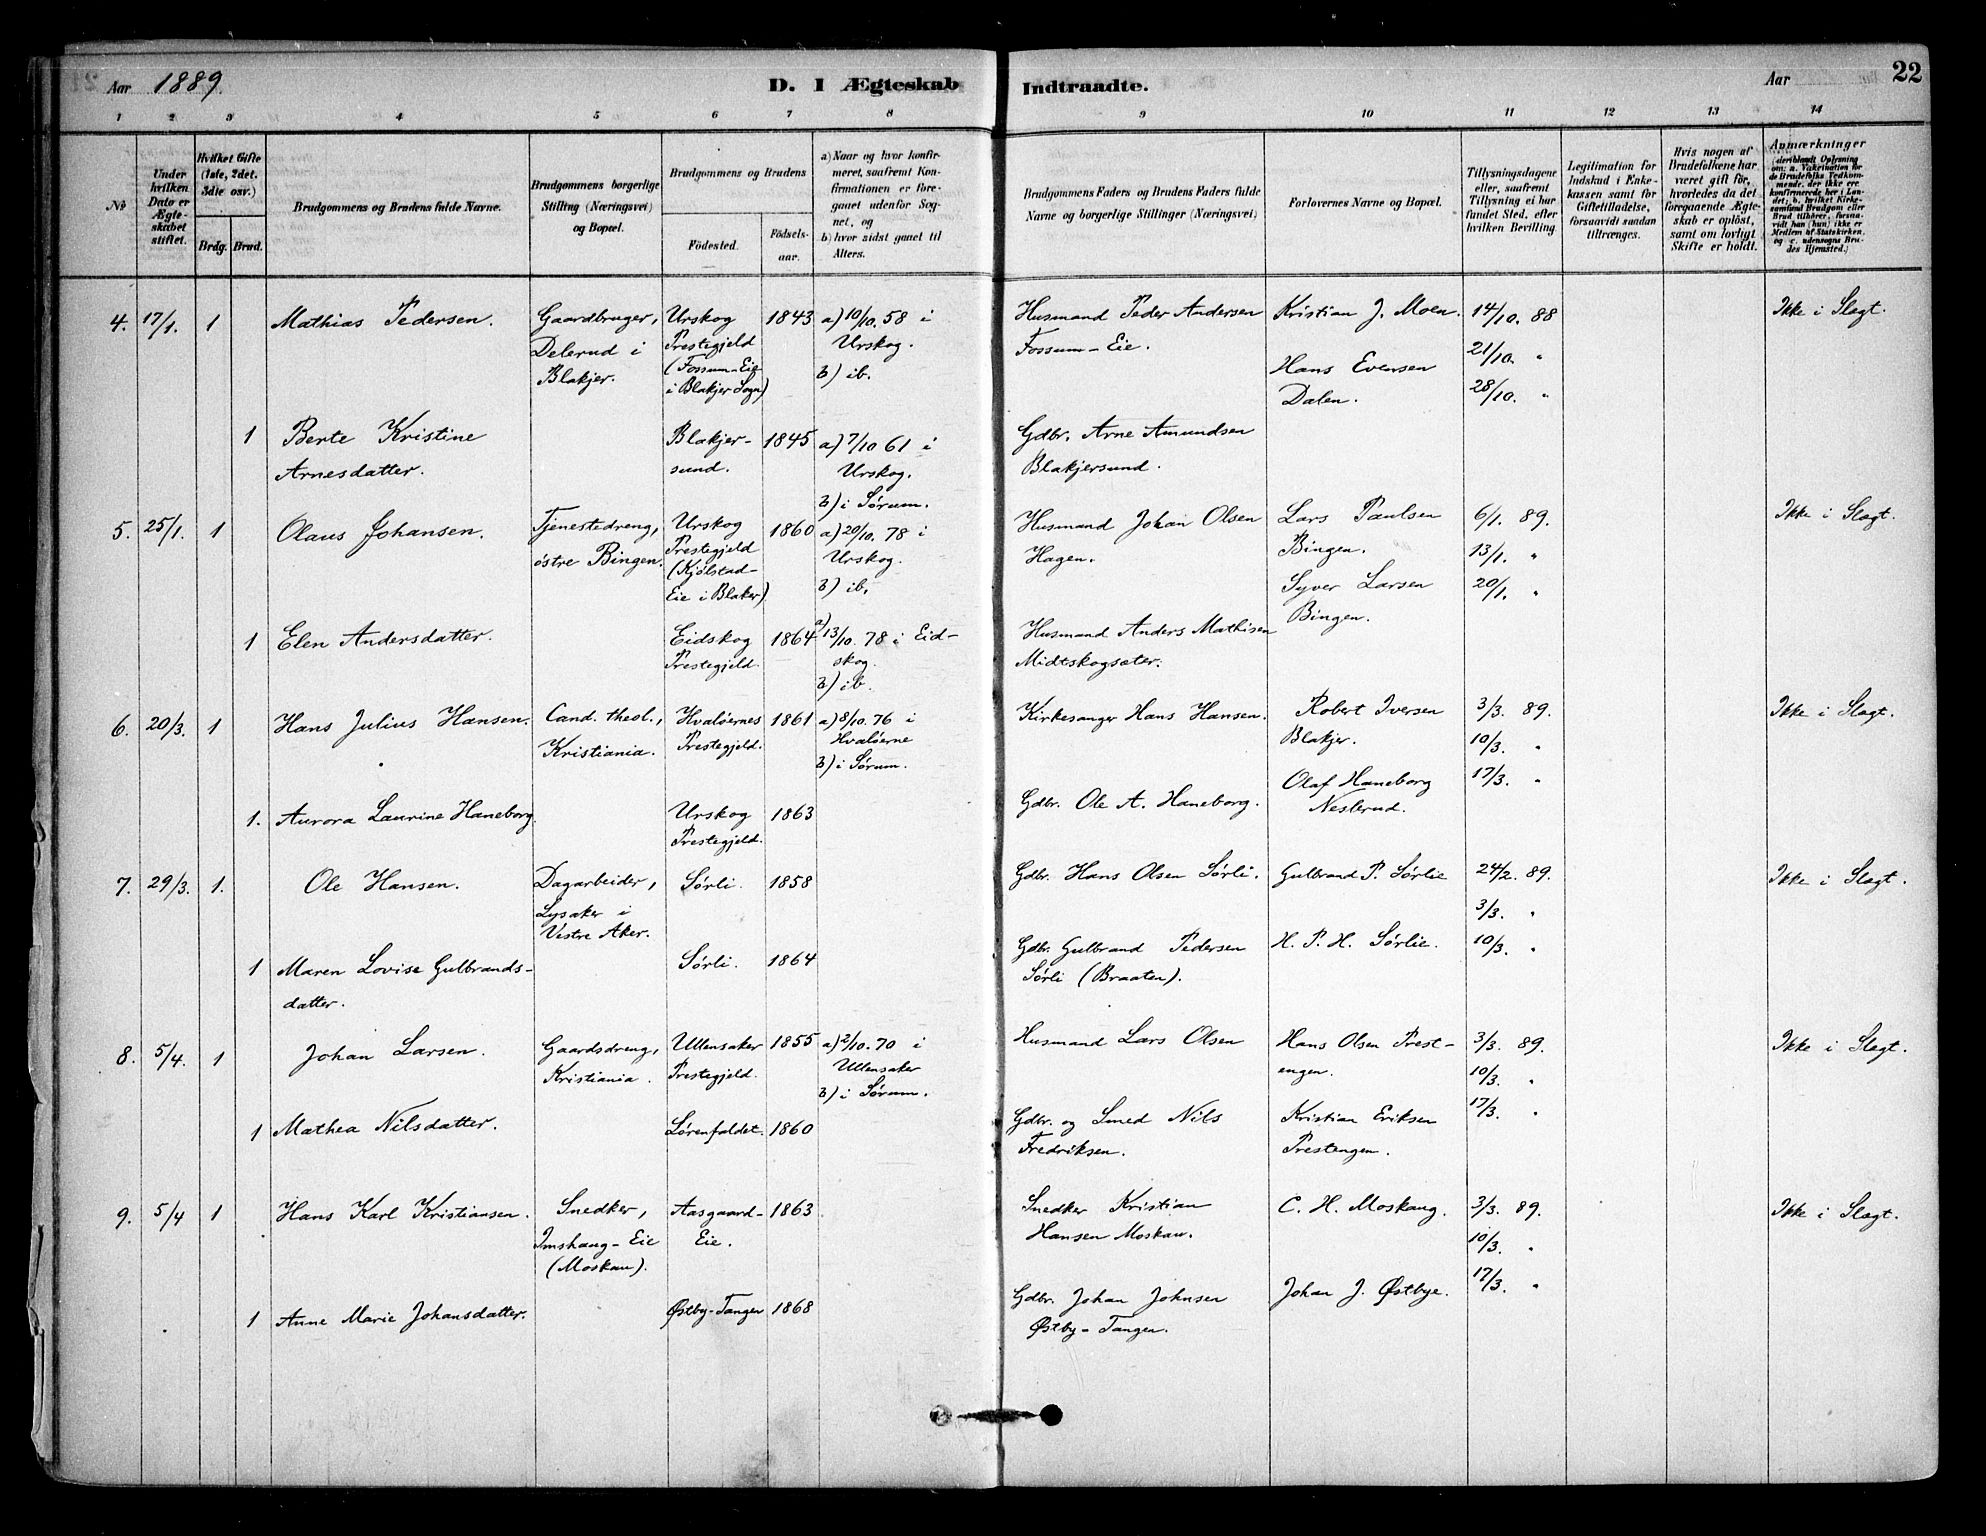 Aar 1889.
D. I Ægteskab Indtraadte.
Aar
22
1 2 3 4 5 6 7 8 9 10 11 12 13 14
No
Under hvilken Dato er Ægteskabet stiftet.
Hvilket Gifte (1ste, 2det, 3die osv.)
Brdg. Brud.
Brudgommens og Brudens fulde Navne.
Brudgommens borgerlige Stilling (Næringsvei) og Bopæl.
Brudgommens og Brudens
Födested.
Födselsaar.
a) Naar og hvor konfirmeret, saafremt Konfirmationen er foregaaet udenfor Sognet, og
b) hvor sidst gaaet til Alters.
Brudgommens Faders og Brudens Faders fulde Navne og borgerlige Stillinger (Næringsvei)
Forlovernes Navne og Bopæl.
Tillysningsdagene eller, saafremt Tillysning ei har fundet Sted, efter hvilken Bevilling.
Legitimation for Indskud i Enkekassen samt for Giftetilladelse, forsaavidt saadan tiltrænges.
Hvis nogen af Brudefolkene har været gift för, hvorledes da det foregaaende Ægteskab er oplöst, samt om lovligt Skifte er holdt.
Anmærkninger
(deriblandt Oplysning om: a. Vakcination for de Brudefolks Vedkommende, der ikke ere konfirmerede her i Landet; b. hvilket Kirkesamfund Brudgom eller Brud tilhörer, forsaavidt han (hun) ikke er Medlem af Statskirken, og c. udensogns Brudes Hjemsted.)
4. 17/1. 1 Mathias Pedersen. Gaardbruger, Delerud i Blakjer. Urskog Prestegjeld (Fossum-Eie i Blakjer Sogn) 1843 a) 10/10. 58 i Urskog. b) ib. Husmand Peder Andersen Fossum-Eie. Kristian J. Moen. Hans Evensen Dalen. 14/10. 88 21/10. " 28/10. " Ikke i Slægt.
1 Berte Kristine Arnesdatter. Blakjersund. 1845 a) 7/10 61 i Urskog. b) i Sørum. Gdbr. Arne Amundsen Blakjersund.
5. 25/1. 1 Olaus Johansen. Tjenestedreng, østre Bingen. Urskog Prestegjeld (Kjølstad-Eie i Blaker) 1860 a) 20/10. 78 i Urskog. b) ib. Husmand Johan Olsen Hagen. Lars Paulsen Bingen. Syver Larsen Bingen. 6/1. 89. 13/1. " 20/1. " Ikke i Slægt.
1 Elen Andersdatter. Eidskog Prestegjeld. 1864 a) 13/10. 78 i Eidskog. b) ib. Husmand Anders Mathisen Midtskogsæter.
6. 20/3. 1 Hans Julius Hansen. Cand. theol., Kristiania. Hvaløernes Prestegjeld. 1861 a) 8/10. 76 i Hvaløerne b) i Sørum. Kirkesanger Hans Hansen. Robert Iversen Blakjer. Olaf Haneborg Neslerud. 3/3. 89. 10/3. " 17/3. " Ikke i Slægt.
1. Aurora Laurine Haneborg. Urskog Prestegjeld. 1863 Gdbr. Ole A. Haneborg.
7. 29/3. 1. Ole Hansen. Dagarbeider, Lysaker i Vestre Aker. Sørli. 1858 Gdbr. Hans Olsen Sørli. Gulbrand P. Sørlie H. P. H. Sørlie. 24/2. 89. 3/3. " 10/3. " Ikke i Slægt.
1 Maren Lovise Gulbrandsdatter. Sørli. 1864 Gdbr. Gulbrand Pedersen Sørli (Braaten).
8. 5/4. 1 Johan Larsen. Gaardsdreng, Kristiania. Ullensaker Prestegjeld. 1855 a) 2/10. 70 i Ullensaker b) i Sørum. Husmand Lars Olsen Hans Olsen Prestengen. Kristian Eriksen Prestengen. 3/3. 89. 10/3. " 17/3. " Ikke i Slægt.
1 Mathea Nilsdatter. Lørenfaldet. 1860 Gdbr. og Smed Nils Fredriksen.
9. 5/4 1 Hans Karl Kristiansen. Snedker, Imshaug-Eie (Moskau). Aasgaard-Eie. 1863 Snedker Kristian Hansen Moskau. C. H. Moskaug. Johan J. Østbye. 3/3. 89. 10/3. " 17/3. " Ikke i Slægt.
1 Anne Marie Johansdatter. Østby-Tangen 1868 Gdbr. Johan Johnsen Østby-Tangen.